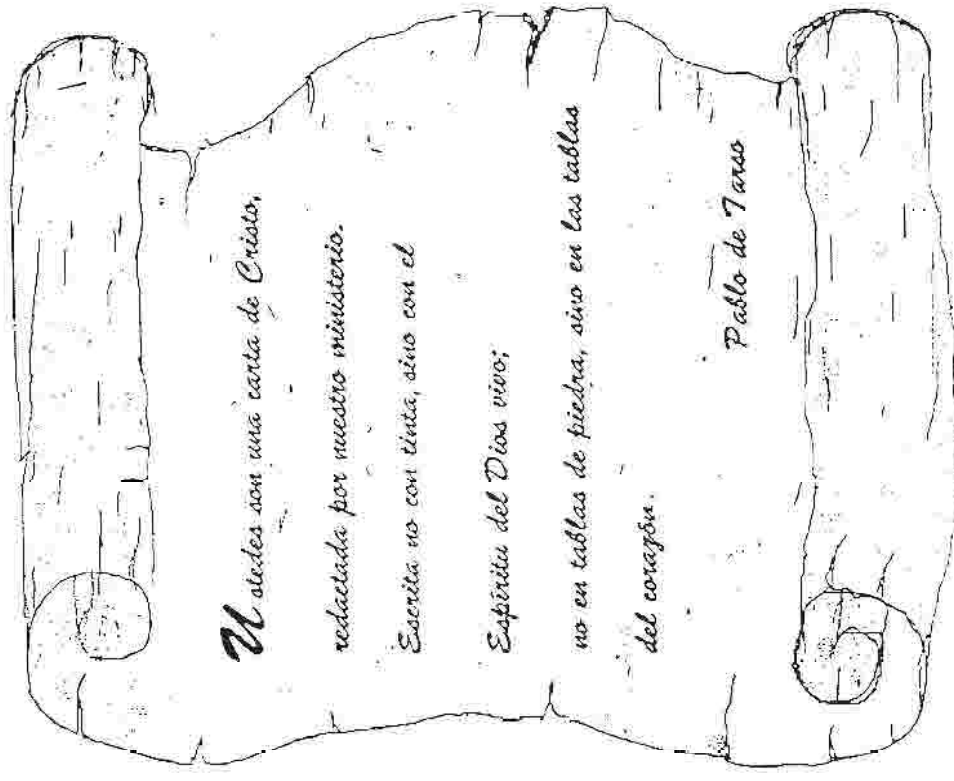 Ustedes son una carta de Cristo,
redactada por nuestro ministerio.
Escrita no con tinta, sino con el
Espíritu del Dios vivo;
no en tablas de piedra, sino en las tablas
del corazón.
Pablo de Tarso